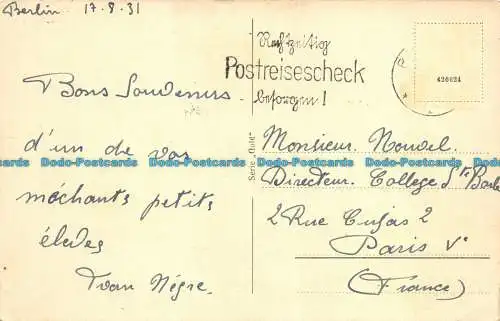 Berlin 17.8.31
Rechtzeitig
Postreisescheck
besorgen!
426624
Bons Souvenirs
d'un de vos
méchants petits
élèves
Ivan Nègre.
Serie „Gold"
Monsieur. Nouvel.
Directeur. College Ste Barbe
2 Rue Cujas 2
Paris Ve
(France)
Dodo-Postcards Dodo-Postcards Dodo-Postcards Dodo-Postcards Dodo-Postcards